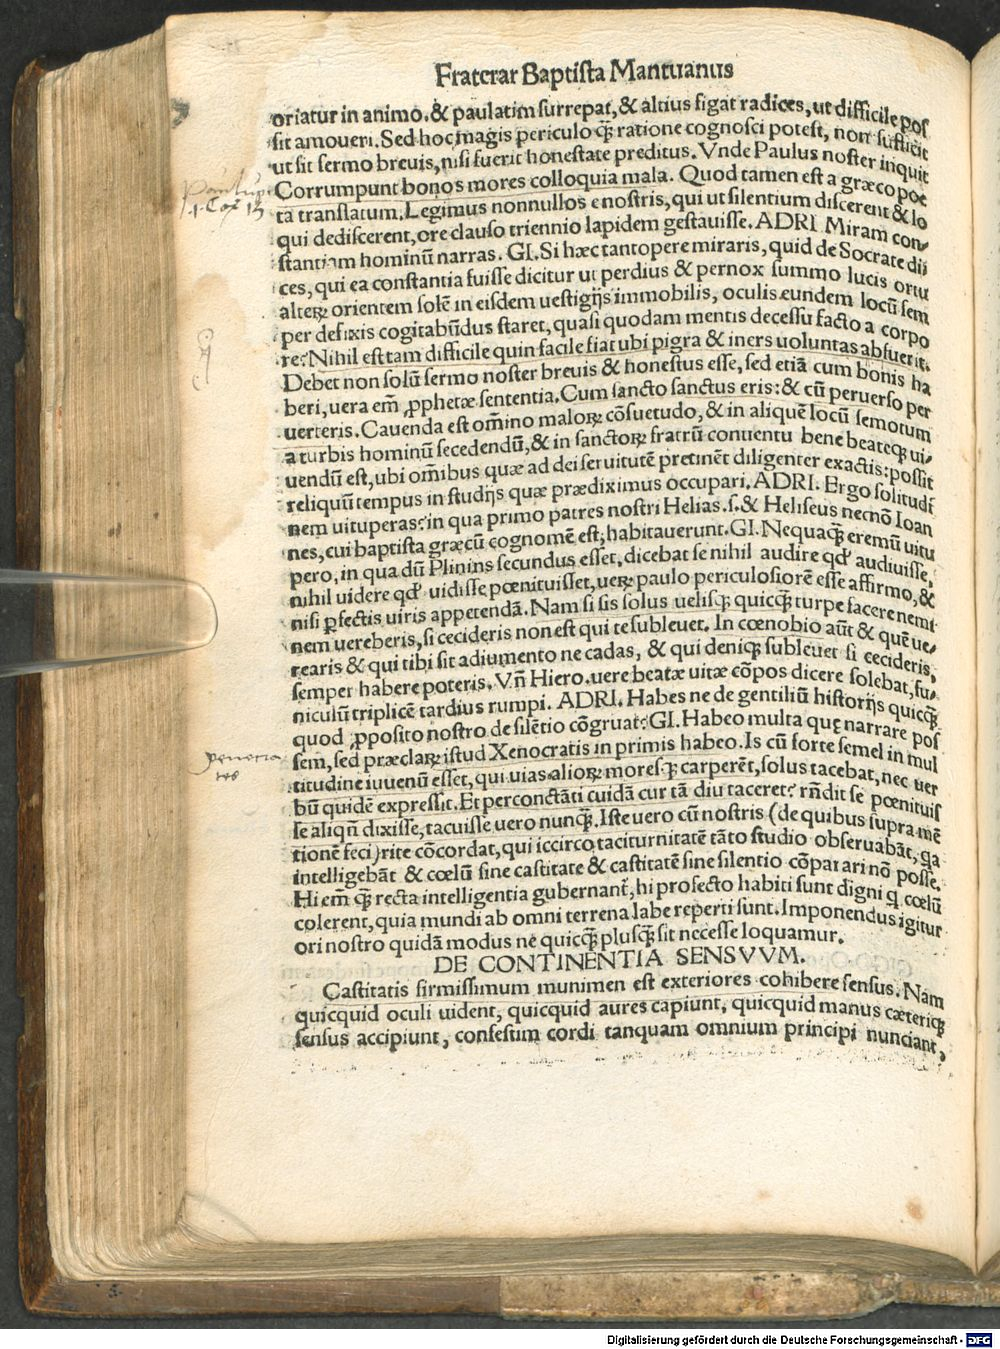 Fraterar Baptista Mantuanus
oriatur in animo.& paulatim surrepat,& altius figat radices,ut difficile pos
sit amoueri.Sed hoc magis periculo q̃ ratione cognosci potest, non sufficit
ut sit sermo breuis,nisi fuerit honestate preditus. Vnde Paulus noster inquit
Corrumpunt bonos mores colloquia mala. Quod tamen est a græco poe
ta translatum.Legimus nonnullos e nostris,qui ut silentium discerent & lo
qui dediscerent,ore clauso triennio lapidem gestauisse. ADRI Miram con-
stantiam hominũ narras. GI.Si hæc tantopere miraris,quid de Socrate dii
ces,qui ea constantia fuisse dicitur ut perdius & pernox summo lucis ortu
alteꝝ orientem solẽ in eisdem uestigijs immobilis, oculis eundem locũ sem
per defixis cogitabũdus staret,quasi quodam mentis decessu facto a corpo
re? Nihil est tam difficile quin facile fiat ubi pigra & iners uoluntas absuerit.
Debet non solũ sermo noster breuis & honestus esse,sed etiã cum bonis ha
beri,uera em̃ ꝓphetæ sententia.Cum sancto sanctus eris:& cũ peruerso per
uerteris.Cauenda est om̃ino maloꝝ cõsuetudo,& in aliquẽ locũ semotum
a turbis hominũ secedendũ,& in sanctoꝝ fratrũ conuentu bene beateq; ui-
uendũ est,ubi om̃ibus quæ ad dei seruitutẽ pertinẽt diligenter exactis:possit
reliquũ tempus in studijs quæ prædiximus occupari.ADRI. Ergo solitudi
nem uituperas? in qua primo patres nostri Helias.s.& Heliseus necnõ Ioan
nes,cui baptista græcũ cognomẽ est,habitauerunt.GI.Nequaq̃ eremũ uitu
pero,in qua dũ Plinins secundus esset,dicebat se nihil audire qd' audiuisse,
nihil uidere qd' uidisse pœnituisset,ueꝝ paulo periculosiorẽ esse affirmo,&
nisi ꝑfectis uiris appetendã.Nam si sis solus uelisq; quicq̃ turpe facere nemi
nem uereberis,si cecideris non est qui te subleuet. In cœnobio aũt & quẽ ue-
rearis & qui tibi sit adiumento ne cadas, & qui deniq; subleuet si cecideris,
semper habere poteris. Vñ Hiero.uere beatæ uitæ cõpos dicere solebat,fu-
niculũ triplicẽ tardius rumpi. ADRI. Habes ne de gentiliũ historijs quicq̃
quod ꝓposito nostro de silẽtio cõgruat? GI.Habeo multa quę narrare pos
sem,sed præclaꝝ istud Xenocratis in primis habeo.Is cũ forte semel in mul
titudine iuuenũ esset,qui uias alioꝝ moresq; carperẽt,solus tacebat,nec uer
bũ quidẽ expressit.Et percõctãti cuidã cur tã diu taceret? rñdit se pœnituis
se aliqñ dixisse,tacuisse uero nunq̃.Iste uero cũ nostris (de quibus supra mẽ
tionẽ feci) rite cõcordat,qui iccirco taciturnitatẽ tãto studio obseruabãt, qa
intelligebãt & cœlũ sine castitate & castitatẽ sine silentio cõparari nõ posse.
Hi em̃ q̃ recta intelligentia gubernant̃,hi profecto habiti sunt digni q cœlũ
colerent,quia mundi ab omni terrena labe reperti sunt.Imponendus igitur
ori nostro quidã modus ne quicq̃ plusq̃ sit necesse loquamur.
DE CONTINENTIA SENSVVM.
Castitatis firmissimum munimen est exteriores cohibere sensus. Nam
quicquid oculi uident, quicquid aures capiunt, quicquid manus cæteriq;
sensus accipiunt, confestim cordi tanquam omnium principi nunciant,
Paulus
1. Cor 15
Xenocra
tes
Digitalisierung gefördert durch die Deutsche Forschungsgemeinschaft - DFG